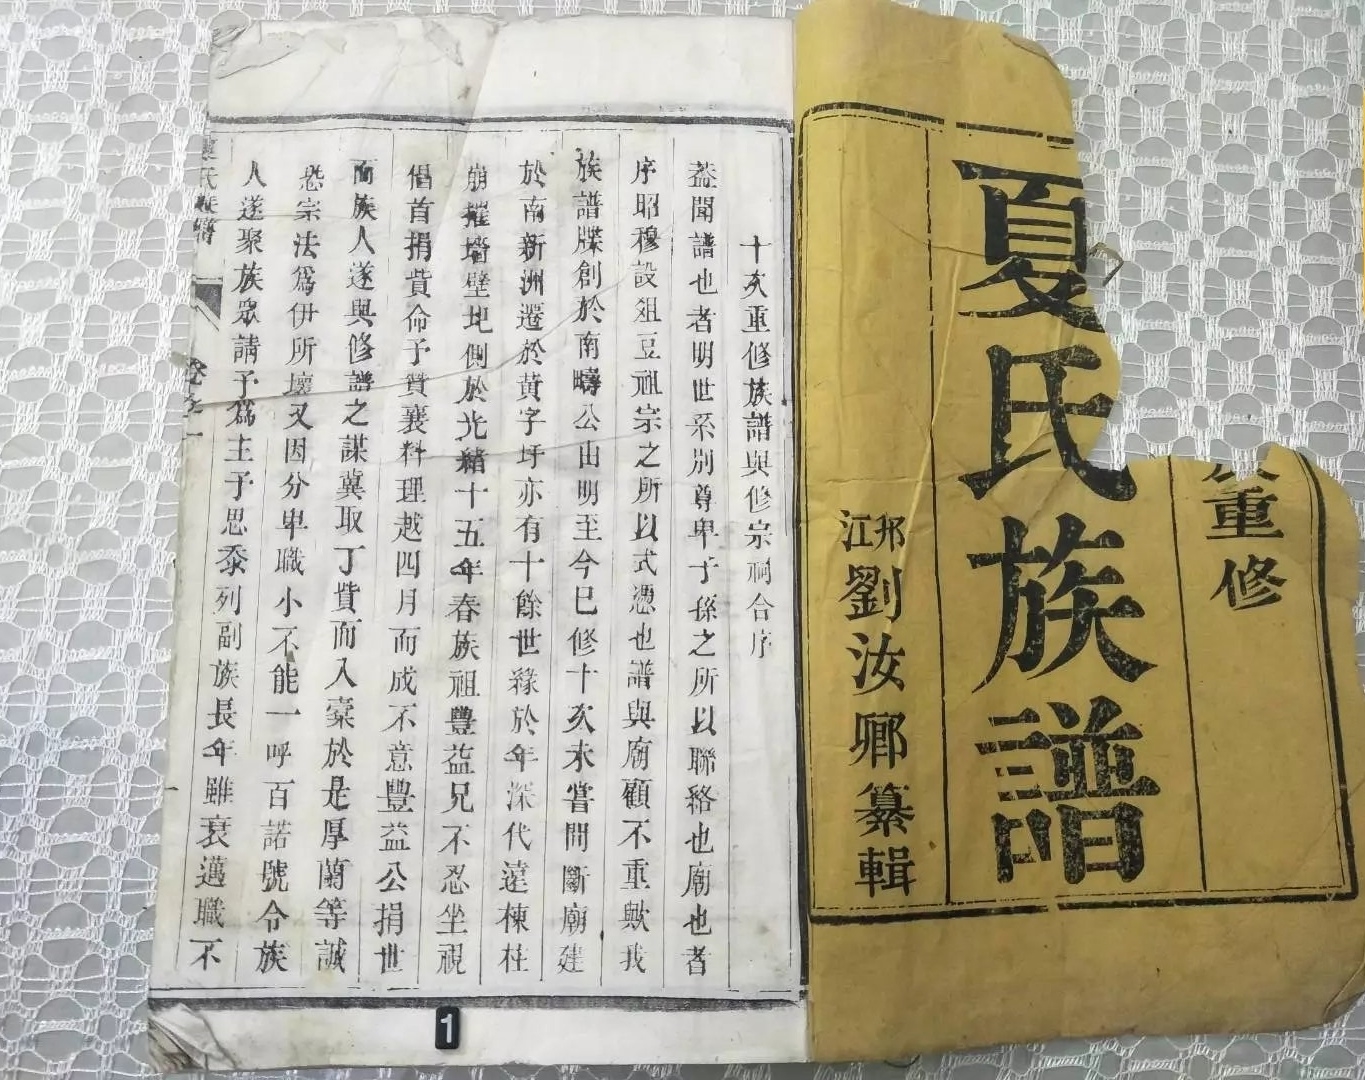 重修
夏氏族譜
邦江劉汝鄉纂輯
十次重修族譜與修宗祠合序
蓋聞譜也者明世系别尊卑子孫之所以聯絡也廟也者
序昭穆設俎豆祖宗之所以式憑也譜與廟顧不重歟我
族譜牒創於南疇公由明至今已修十次未嘗間斷廟建
於南新洲遷於黃字圩亦有十餘世緣於年深代遠棟柱
崩摧墻壁圮側於光緒十五年春族祖豐益兄不忍坐視
倡首捐貲命予贊襄料理越四月而成不意豐益公捐世
而族人遂與修譜之謀冀取丁貲而入橐於是厚蘭等誠
恐宗法爲伊所壞又因分卑職小不能一呼百諾號令族
人遂聚族眾請予爲主予思忝列副族長年雖衰邁職不
氏族譜
卷之一
1